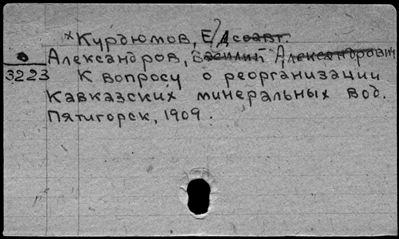 *Курдюмов, Е/Д соавт.
Александров, Василий Александрович
3223
К вопросу о реорганизации
Кавказских минеральных вод.
Пятигорск, 1909.